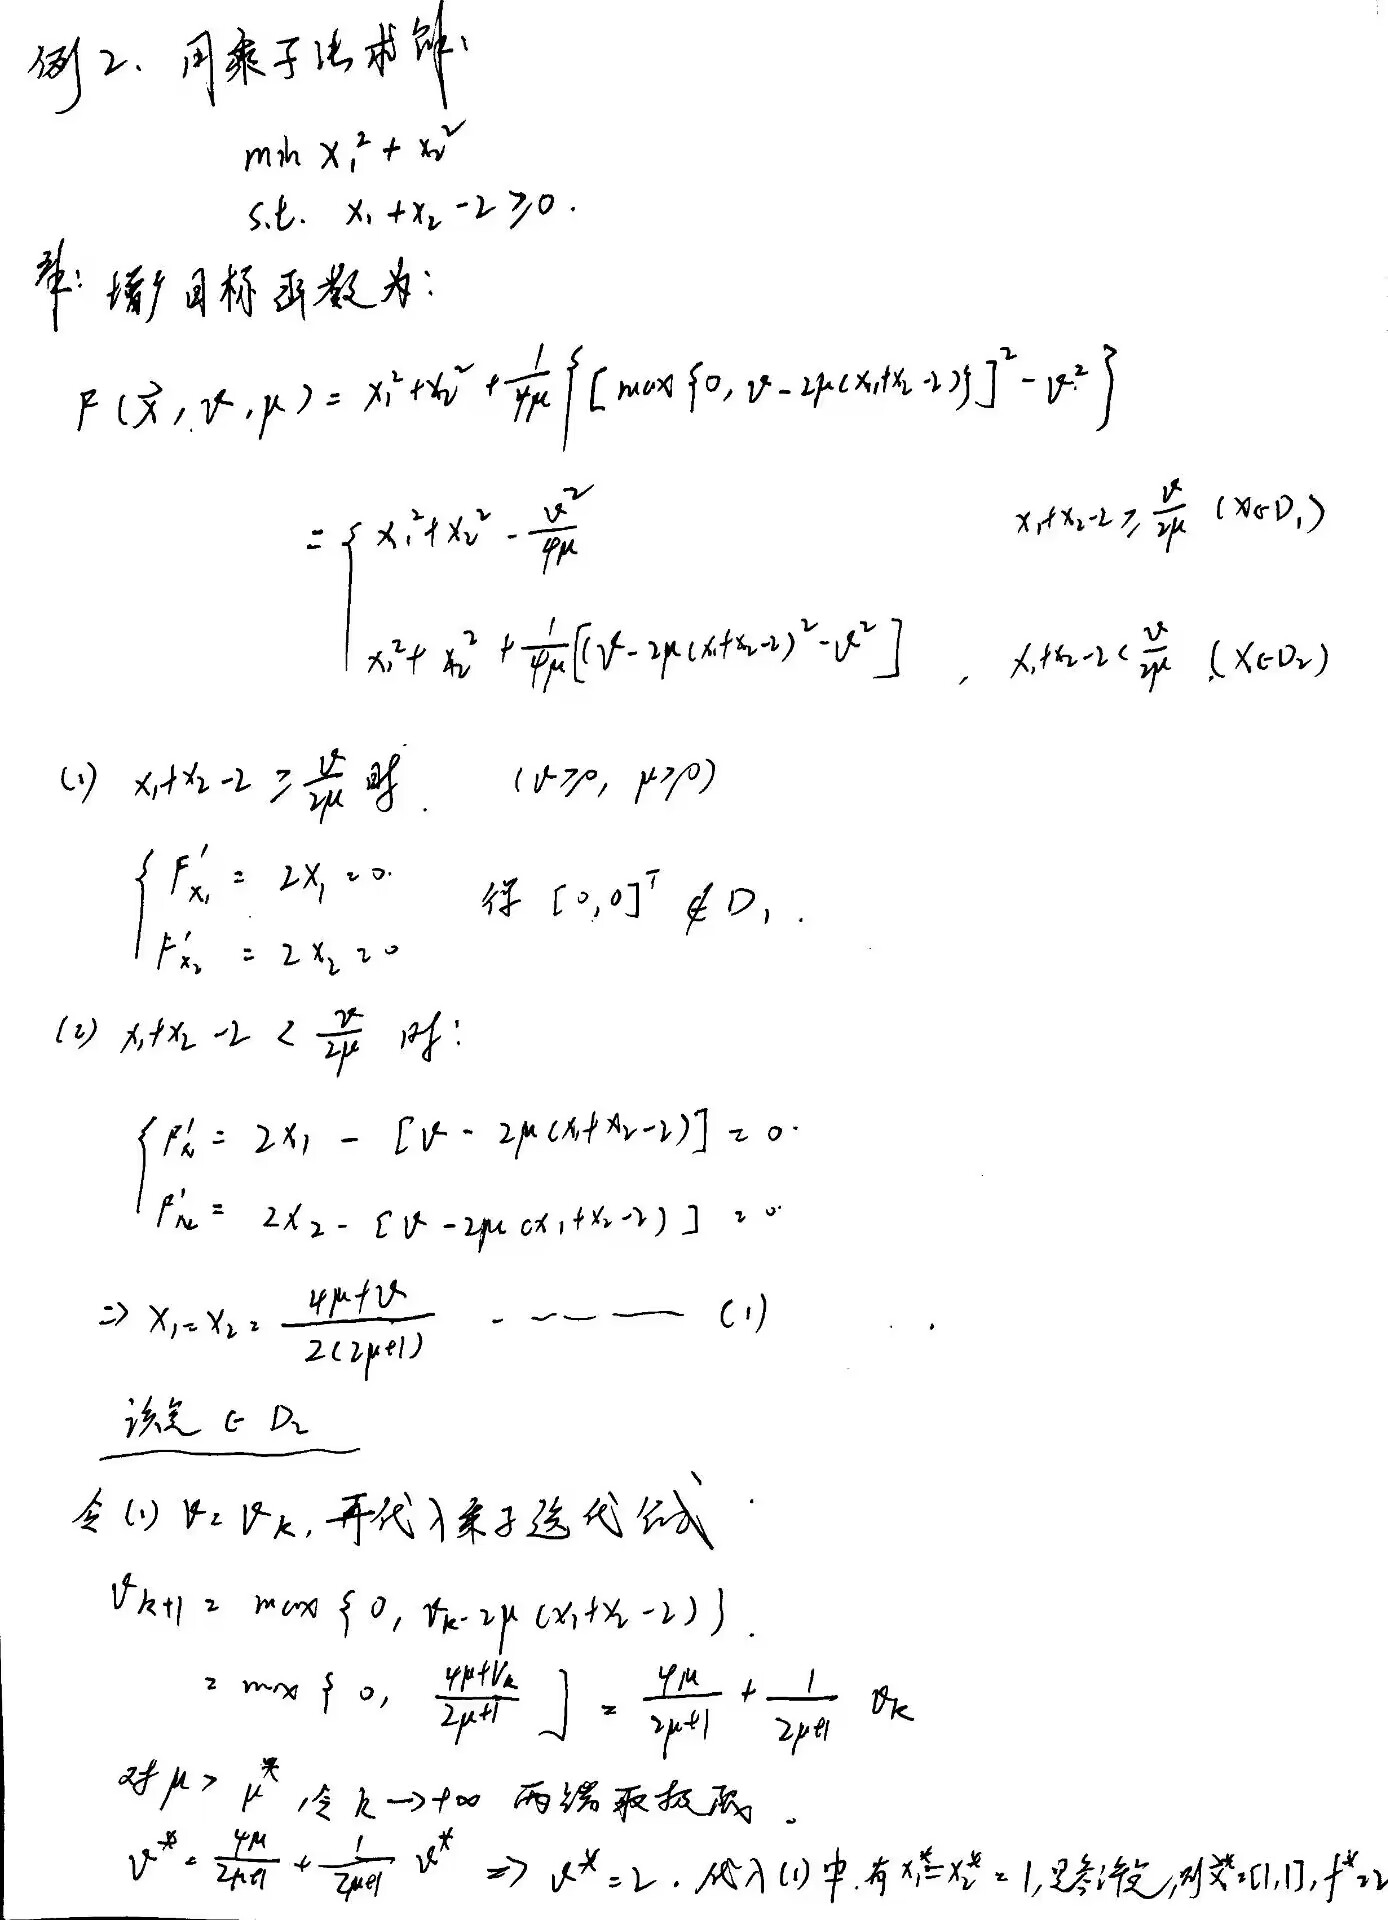 例2. 用乘子法求解:
min x₁² + x₂²
s.t. x₁ + x₂ - 2 ≥ 0.
解: 增广目标函数为:
F(x⃗, v, μ) = x₁² + x₂² + 1/(4μ) { [max{0, v - 2μ(x₁+x₂-2)}]² - v² }
= { x₁² + x₂² - v²/(4μ)   x₁+x₂-2 ≥ v/(2μ) (x∈D₁)
x₁² + x₂² + 1/(4μ) [(v - 2μ(x₁+x₂-2)² - v²] , x₁+x₂-2 < v/(2μ) (x∈D₂)
(1) x₁+x₂-2 ≥ v/(2μ) 时. (v≥0, μ≥0)
{ F'x₁ = 2x₁ = 0. 得 [0,0]ᵀ ∉ D₁.
F'x₂ = 2x₂ = 0
(2) x₁+x₂-2 < v/(2μ) 时:
{ F'x₁ = 2x₁ - [v - 2μ(x₁+x₂-2)] = 0.
F'x₂ = 2x₂ - [v - 2μ(x₁+x₂-2)] = 0.
⇒ x₁ = x₂ = (4μ+v)/(2(2μ+1)) ------ (1)
该点 ∈ D₂
令(1) v = vₖ, 再代入乘子迭代公式
vₖ₊₁ = max{0, vₖ - 2μ(x₁+x₂-2)}.
= max{0, (4μ+vₖ)/(2μ+1)] = 4μ/(2μ+1) + 1/(2μ+1) vₖ
对 μ > μ*, 令 k→+∞ 两端取极限.
v* = 4μ/(2μ+1) + 1/(2μ+1) v* ⇒ v* = 2. 代入(1)中, 有 x₁* = x₂* = 1, 则 x⃗* = [1,1], f* = 2